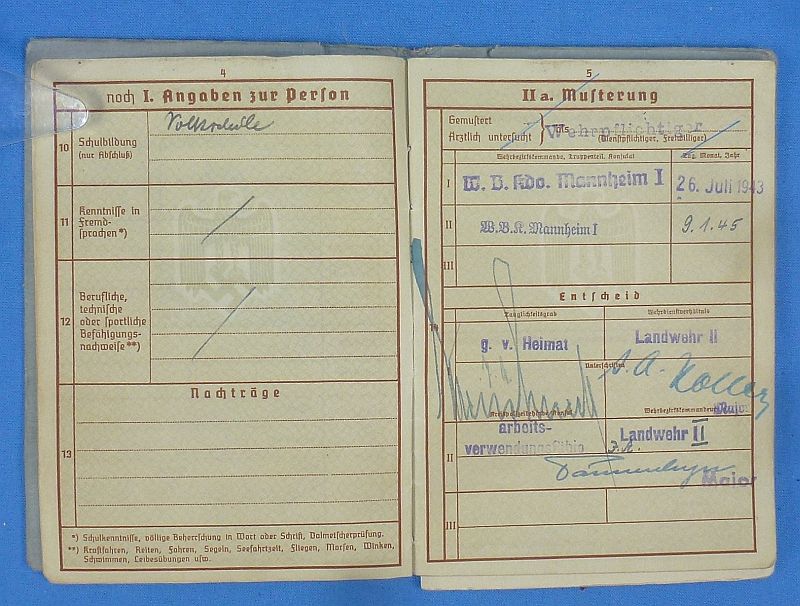 4
noch I. Angaben zur Person
10 Schulbildung
(nur Abschluß)
Volksschule
11 Kenntnisse in
Fremd-
sprachen*)
12 Berufliche,
technische
oder sportliche
Befähigungs-
nachweise**)
Nachträge
13
*) Schulkenntnisse, völlige Beherrschung in Wort oder Schrift, Dolmetscherprüfung.
**) Kraftfahren, Reiten, Fahren, Segeln, Seefahrtzeit, Fliegen, Morsen, Winken,
Schwimmen, Leibesübungen usw.
5
II a. Musterung
Gemustert
Ärztlich untersucht
als
Wehrpflichtiger
(Dienstpflichtiger, Freiwilliger)
Wehrbezirkskommando, Truppenteil, Konsulat
Tag, Monat, Jahr
I W. B. Kdo. Mannheim I 26. Juli 1943
II W.B.K. Mannheim I 9.1.45
III
Entscheid
Tauglichkeitsgrad
Wehrdienstverhältnis
g. v. Heimat
Landwehr II
Unterschriften
Wehrbezirkskommandeur
Major
II arbeits-
verwendungsfähig
Landwehr II
Major
III